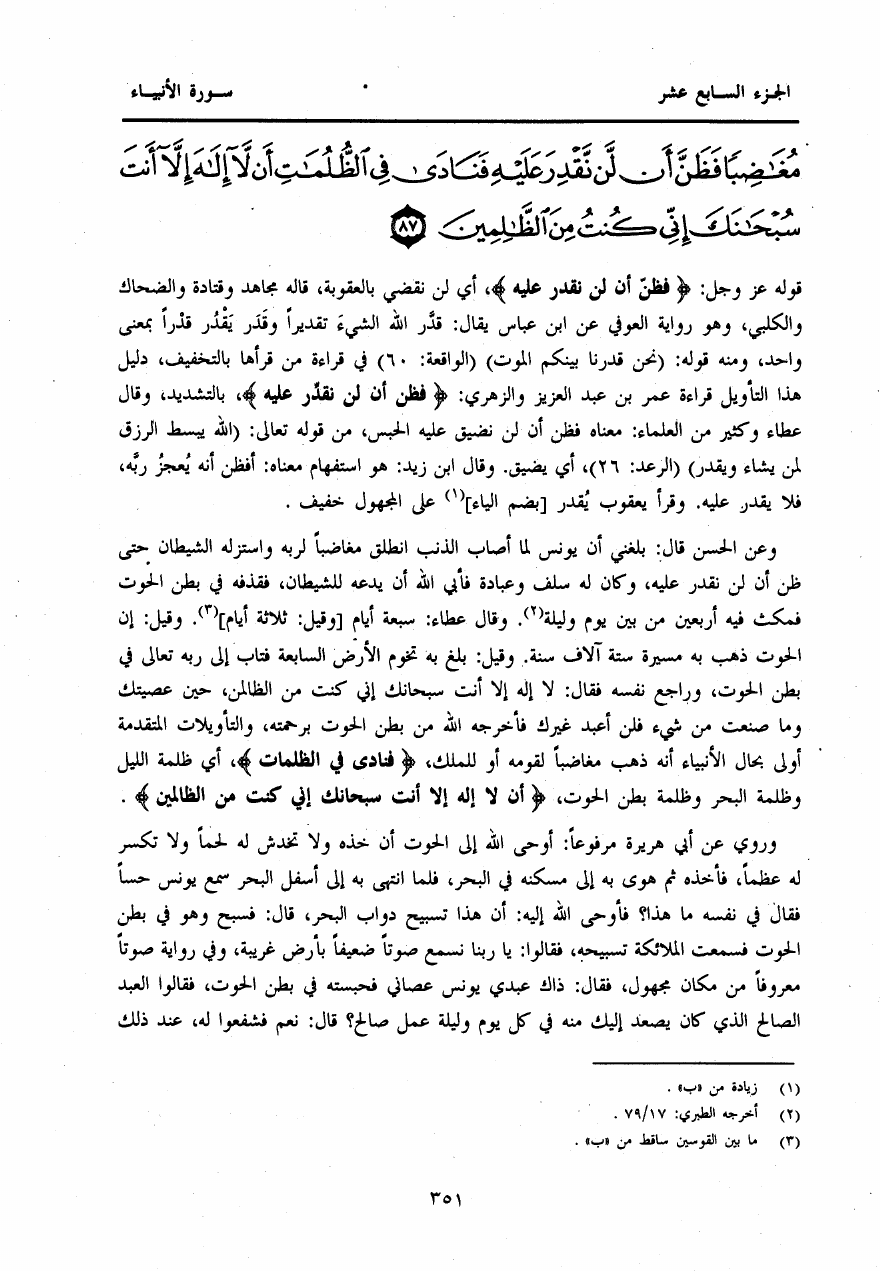 الجزء السابع عشر
سورة الأنبياء
مُغَٰضِبًا فَظَنَّ أَن لَّن نَّقْدِرَ عَلَيْهِ فَنَادَىٰ فِى ٱلظُّلُمَٰتِ أَن لَّآ إِلَٰهَ إِلَّآ أَنتَ
سُبْحَٰنَكَ إِنِّى كُنتُ مِنَ ٱلظَّٰلِمِينَ ﴿٨٧﴾
قوله عز وجل: ﴿ فظنّ أن لن نقدر عليه ﴾، أي لن نقضي بالعقوبة، قاله مجاهد وقتادة والضحاك
والكلبي، وهو رواية العوفي عن ابن عباس يقال: قدَّر الله الشيءَ تقديراً وقَدَر يَقْدُر قدْراً بمعنى
واحد، ومنه قوله: (نحن قدرنا بينكم الموت) (الواقعة: ٦٠) في قراءة من قرأها بالتخفيف، دليل
هذا التأويل قراءة عمر بن عبد العزيز والزهري: ﴿ فظن أن لن نقدّر عليه ﴾، بالتشديد، وقال
عطاء وكثير من العلماء: معناه فظن أن لن نضيق عليه الحبس، من قوله تعالى: (الله يبسط الرزق
لمن يشاء ويقدر) (الرعد: ٢٦)، أي يضيق. وقال ابن زيد: هو استفهام معناه: أفظن أنه يُعجزُ ربَّه،
فلا يقدر عليه. وقرأ يعقوب يُقدر [بضم الياء](١) على المجهول خفيف .
وعن الحسن قال: بلغني أن يونس لما أصاب الذنب انطلق مغاضباً لربه واستزله الشيطان حتى
ظن أن لن نقدر عليه، وكان له سلف وعبادة فأبى الله أن يدعه للشيطان، فقذفه في بطن الحوت
فمكث فيه أربعين من بين يوم وليلة(٢). وقال عطاء: سبعة أيام [وقيل: ثلاثة أيام](٣). وقيل: إن
الحوت ذهب به مسيرة ستة آلاف سنة. وقيل: بلغ به تخوم الأرض السابعة فتاب إلى ربه تعالى في
بطن الحوت، وراجع نفسه فقال: لا إله إلا أنت سبحانك إني كنت من الظالمن، حين عصيتك
وما صنعت من شيء فلن أعبد غيرك فأخرجه الله من بطن الحوت برحمته، والتأويلات المتقدمة
أولى بحال الأنبياء أنه ذهب مغاضباً لقومه أو للملك، ﴿ فنادى في الظلمات ﴾، أي ظلمة الليل
وظلمة البحر وظلمة بطن الحوت، ﴿ أن لا إله إلا أنت سبحانك إني كنت من الظالمين ﴾ .
وروي عن أبي هريرة مرفوعاً: أوحى الله إلى الحوت أن خذه ولا تخدش له لحماً ولا تكسر
له عظماً، فأخذه ثم هوى به إلى مسكنه في البحر، فلما انتهى به إلى أسفل البحر سمع يونس حساً
فقال في نفسه ما هذا؟ فأوحى الله إليه: أن هذا تسبيح دواب البحر، قال: فسبح وهو في بطن
الحوت فسمعت الملائكة تسبيحه، فقالوا: يا ربنا نسمع صوتاً ضعيفاً بأرض غريبة، وفي رواية صوتاً
معروفاً من مكان مجهول، فقال: ذاك عبدي يونس عصاني فحبسته في بطن الحوت، فقالوا العبد
الصالح الذي كان يصعد إليك منه في كل يوم وليلة عمل صالح؟ قال: نعم فشفعوا له، عند ذلك
(١) زيادة من «ب» .
(٢) أخرجه الطبري: ٧٩/١٧ .
(٣) ما بين القوسين ساقط من «ب» .
٣٥١